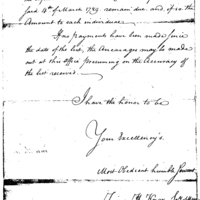 said 4th of March 1789 remain due and if so the
Amount to each individual.
Has payments have been made since
the date of the list, the Arrearages may be made
out at this office presuming on the Accuracy of
the list received.
I have the honor to be
Your Excellency's
Most Obedient humble Servant